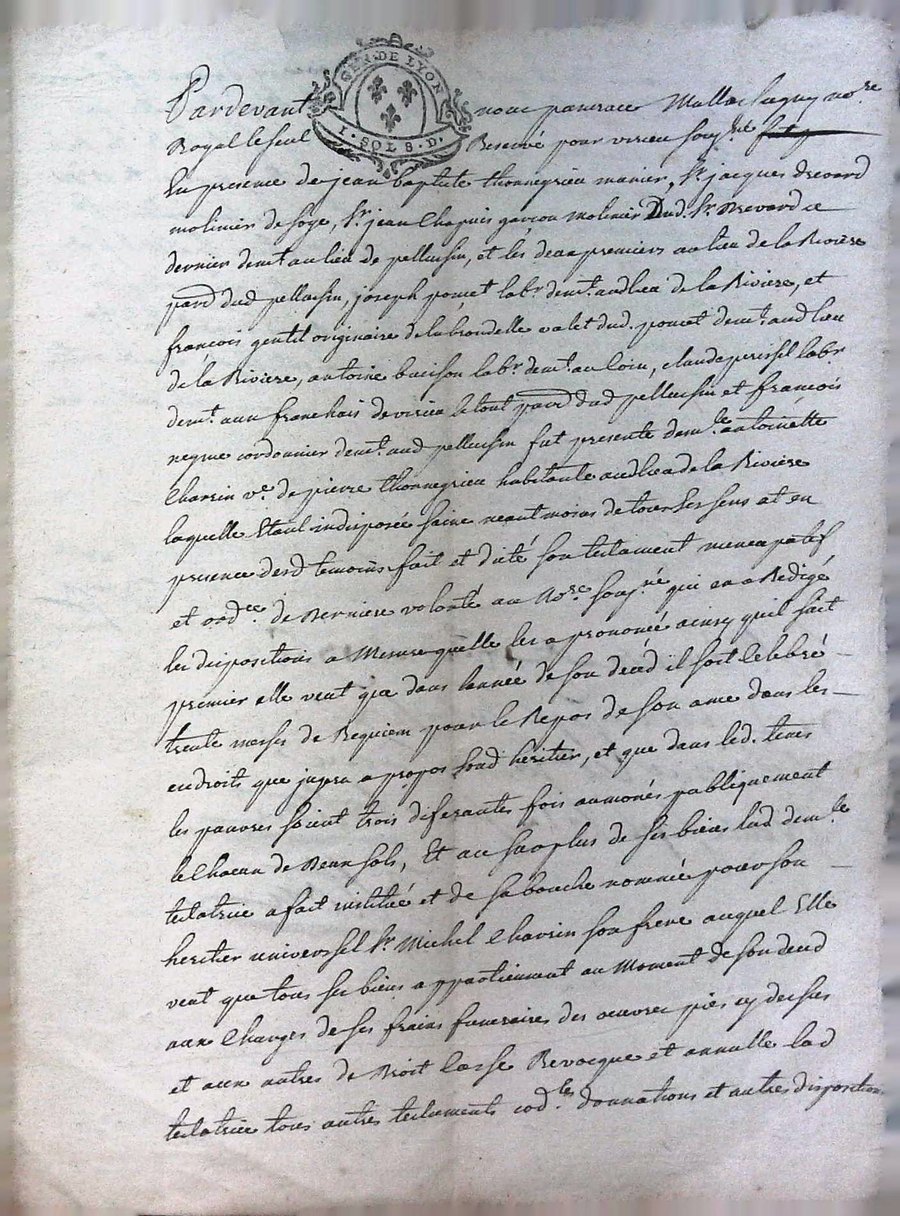 GEN. DE LYON
1. SOL 8. D.
Pardevant nous pancrace Mallassagny no.re
Royal le seul Reservé pour virieu soug.né
En presence de jean baptiste thonnegrieu manier, S.r jacques drevard
molinier de soye, S.r jean Chapuis garcon molinier Dud. S.r Drevard ce
dernier dem.t au lieu de pellussin, et les deux premiers au lieu de la Rivière
par.d dud pellussin, joseph poncet lab.r dem.t audlieu de la Riviere, et
françois gentil originaire de la valet dud. poncet dem.t aud lieu
de la Riviere, antoine buisson lab.r dem.t au loin, claude lab.r
dem.t aux franchais de virieu le tout par.d dud pellussin et françois
cordonnier dem.t aud pellussin fut presente dem.le antoinette
Charvin v.e de pierre thonnegrieu habitante audlieu de la Riviere
laquelle Etant indisposée saine neantmoins de tous ses sens at en
presence desd temoins fait et dicté son testament nuncupatif
et ord.ce de Derniere volonté au No.re soug.né qui en a Redigé
les dispositions a Mesure quelle les a prononcé ainsy quil suit
premier elle veut que dans lannée de son deced il soit Celebré
trente messes de Requiem pour le Repos de son ame dans les
endroit que jugera a propos sond heritier, et que dans led. tems
les pauvres soient trois diferantes fois aumonés publiquement
a Chacun de Deux sols, Et au surplus de ses biens lad dem.le
testatrice a fait institué et de sa bouche nommé pour son
heritier universsel S.r Michel Charvin son frere auquel Elle
veut que tous ses biens appartiennent au Moment de son deced
aux Charges de ses fraix funeraires des oeuvres pies cy dessus
et aux autres de Droit Casse Revocque et annulle lad
testatrice tous autres testaments cod.les donnations et autres disposition